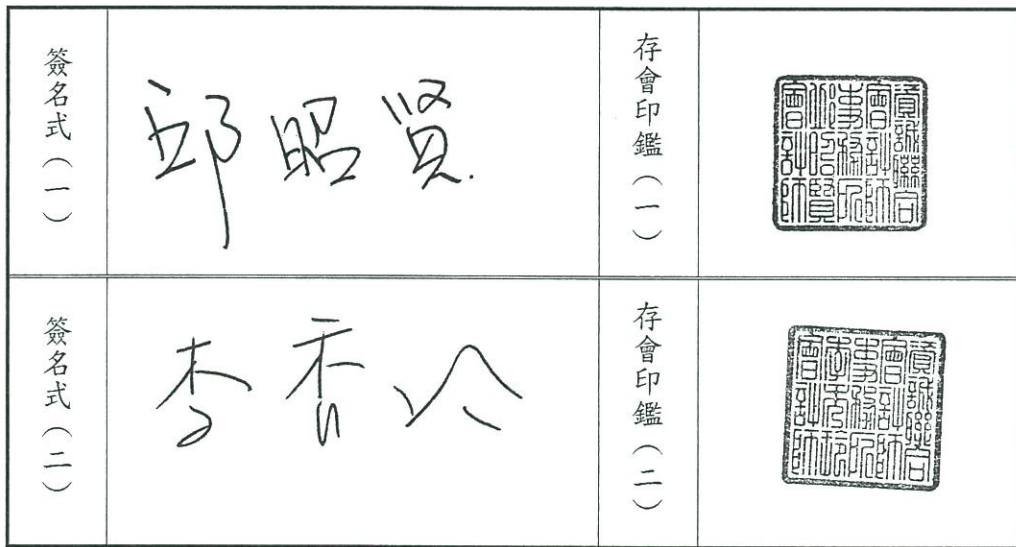 簽名式(一)
邱昭賢
存會印鑑(一)
資誠聯合
會計師
事務所
邱昭賢
會計師
簽名式(二)
李秀玲
存會印鑑(二)
資誠聯合
會計師
事務所
李秀玲
會計師